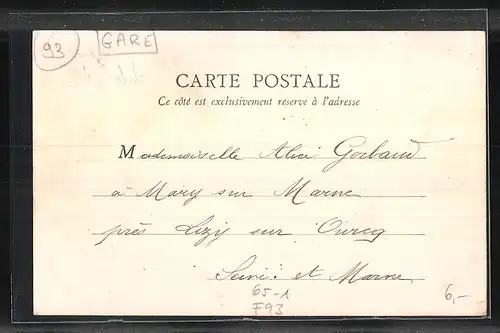 93
GARE
CARTE POSTALE
Ce côté est exclusivement reserve à l'adresse
Mademoiselle Alice Gorbaud
à Mary sur Marne
près Lizy sur Ourcq
Seine et Marne
65-1
F93
6,-